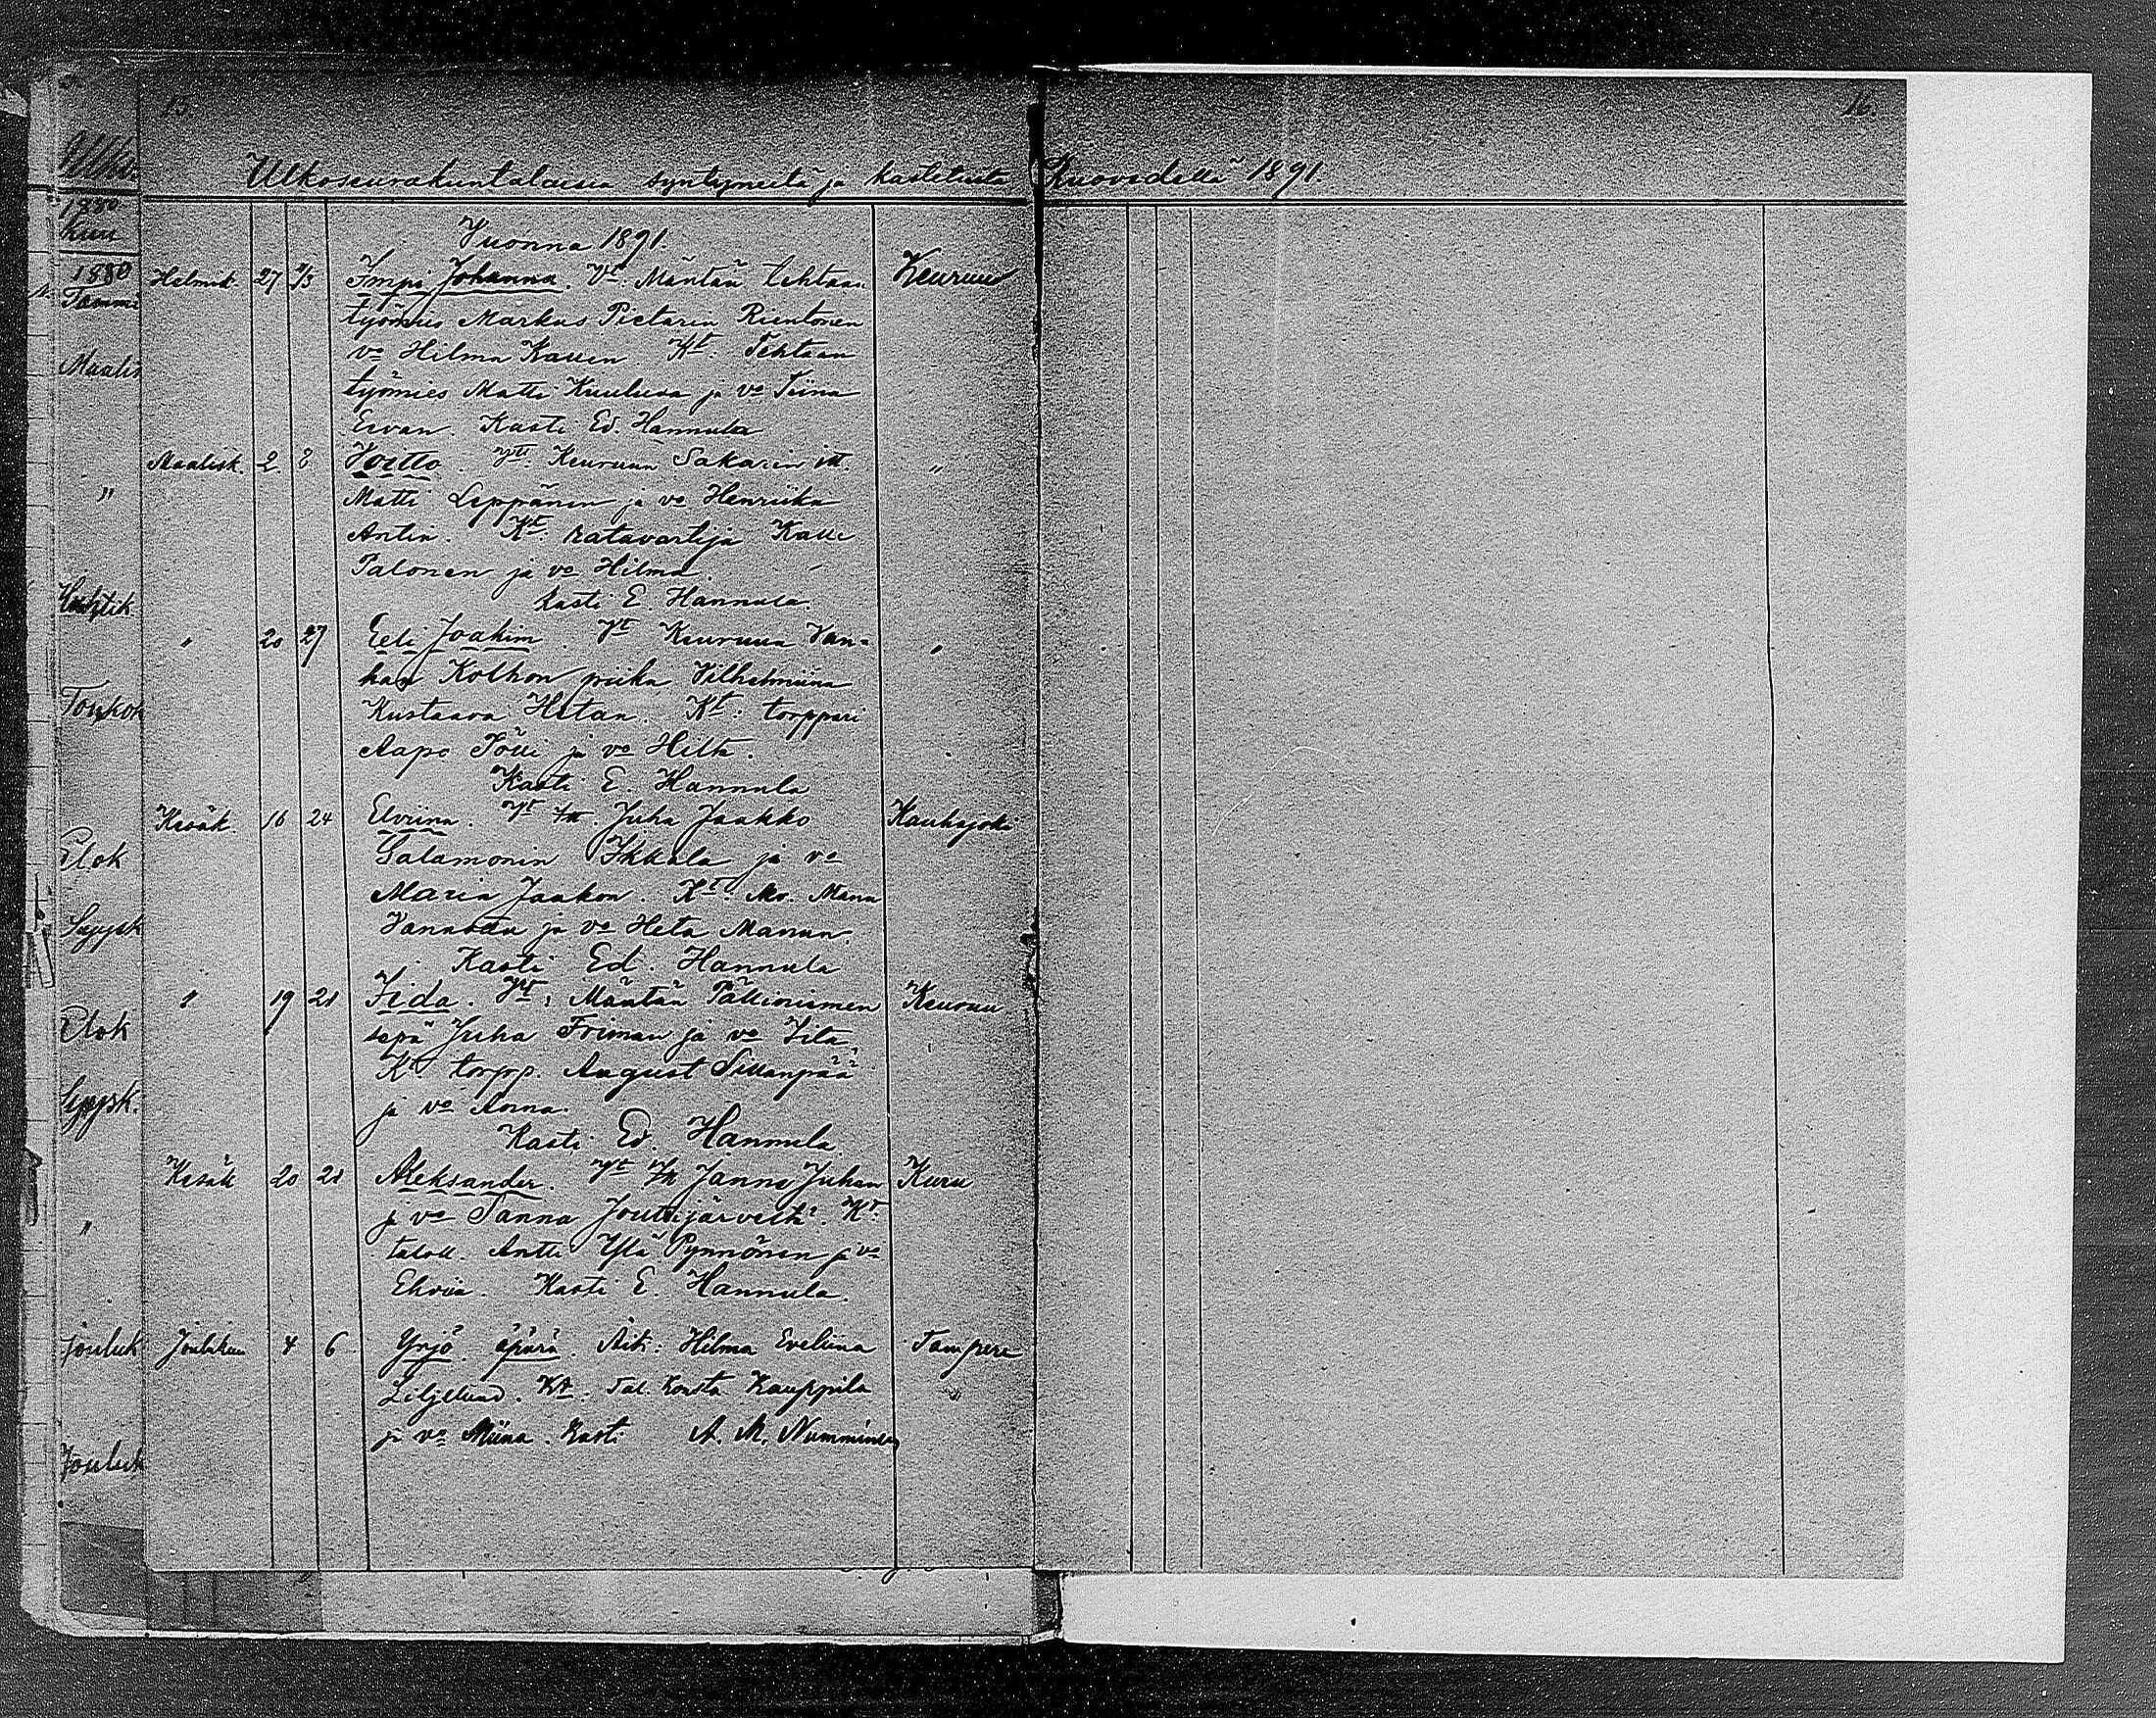 15.
16.
Ulkoseurakuntalaisia syntyneitä ja kastetuita Ruovedellä 1891.
Vuonna 1891.
Helmik. 27 1/3 Impi Johanna. Vt. Mäntän tehtaan Keuruu
työmies Markus Pietarin Rientonen
vo Hilma Kallen Kt. Tehtaan
työmies Matti Kuuluva ja vo Tiina
Eevan. Kasti Ed. Hannula
Maalisk. 2 8 Vt. Keuruun Sakarin itt. "
Matti Leppänen ja vo Henriika
Antin. Kt. Ratavartija Kalle
Palonen ja vo Hilma.
Kasti E. Hannula.
" 20 27 Eeli Joakim. Vt Keuruun Van- "
han Kolhon piika Vilhelmiina
Kustaava Hetan. Kt: torppari
Aapo Tölli ja vo Hilta.
Kasti E. Hannula
Kesäk. 16 24 Elviina. Vt itt. Juha Jaakko Kauhajoki
Salamonin Ikkala ja vo
Maria Jaakon. Kt. Mo. Manu
ja vo Heta Manun.
Kasti Ed. Hannula
" 19 21 Iida. Vt: Mäntän Pällinniemen Keuruu
sepä Juha Friman ja vo Iita
Kt. torpp. August Sillanpää
ja vo Anna.
Kasti Ed. Hannula
Kesäk 20 21 Aleksander. Vt itt Janne Juhan Kuru
ja vo Sanna Joutsijärveltä. Kt.
taloll. Antti Ylä Pynnönen ja vo
Elviia. Kasti E. Hannula.
Joulukuu 4 6 Yrjö. äpärä. Äiti: Hilma Eveliina Tampere
Liljelund. Kt. Tal. Konsta Kauppila "
ja vo Miina. Kasti A. M. Numminen
Ulko.
1880
Kuu
1880
Tammi
Maalis
"
Huhtik
Toukok
Elok
Syysk
Elok
Syysk.
"
Jouluk
Jouluk